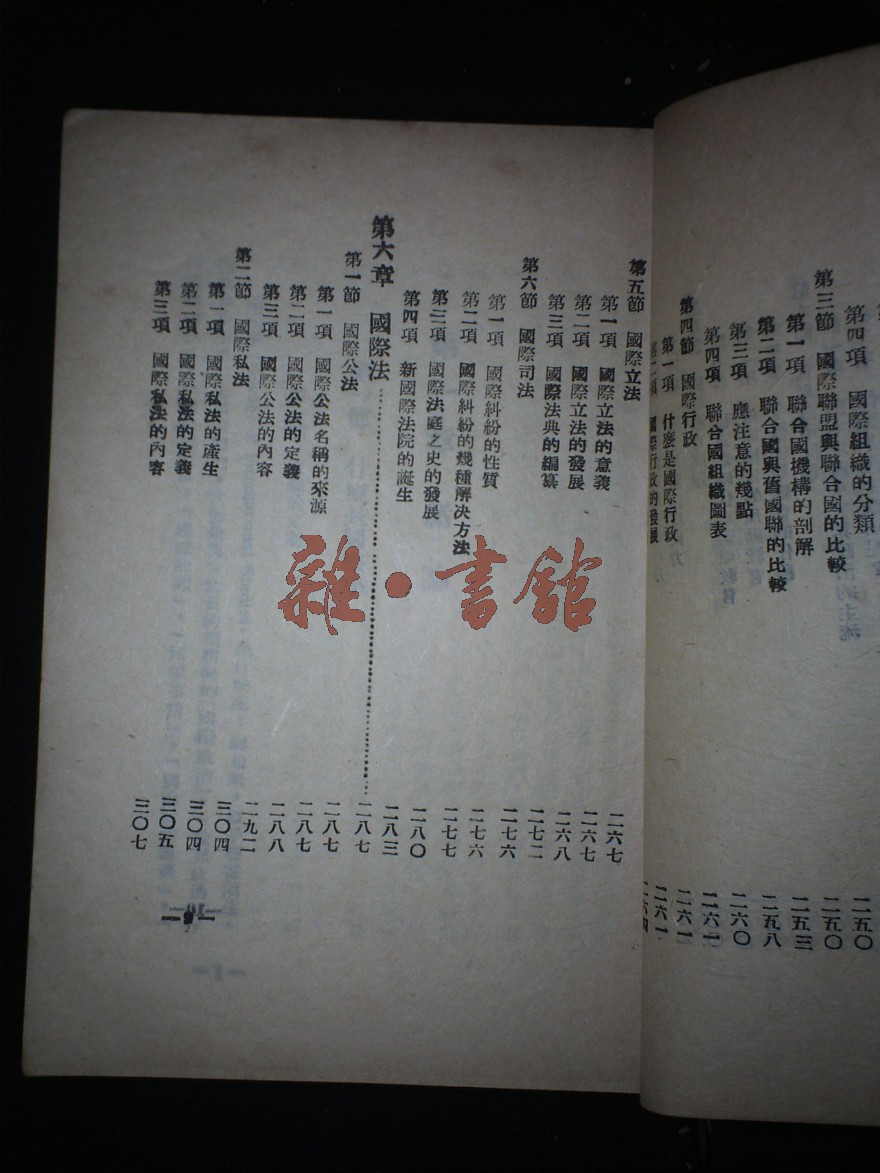 第四項 國際組織的分類 二五〇
第三節 國際聯盟與聯合國的比較 二五〇
第一項 聯合國機構的剖解 二五三
第二項 聯合國與舊國聯的比較 二五八
第三項 應注意的幾點 二六〇
第四項 聯合國組織圖表 二六一
第四節 國際行政 二六一
第一項 什麼是國際行政 二六一
第二項 國際行政的發展 二六四
第五節 國際立法 二六七
第一項 國際立法的意義 二六七
第二項 國際立法的發展 二六八
第三項 國際法典的編纂 二七二
第六節 國際司法 二七六
第一項 國際糾紛的性質 二七六
第二項 國際糾紛的幾種解决方法 二七七
第三項 國際法庭之史的發展 二八〇
第四項 新國際法院的誕生 二八三
第六章 國際法 二八七
第一節 國際公法 二八七
第一項 國際公法名稱的來源 二八七
第二項 國際公法的定義 二八八
第三項 國際公法的內容 二九二
第二節 國際私法 三〇四
第一項 國際私法的產生 三〇四
第二項 國際私法的定義 三〇五
第三項 國際私法的內容 三〇七
— 9 —
雜·書館